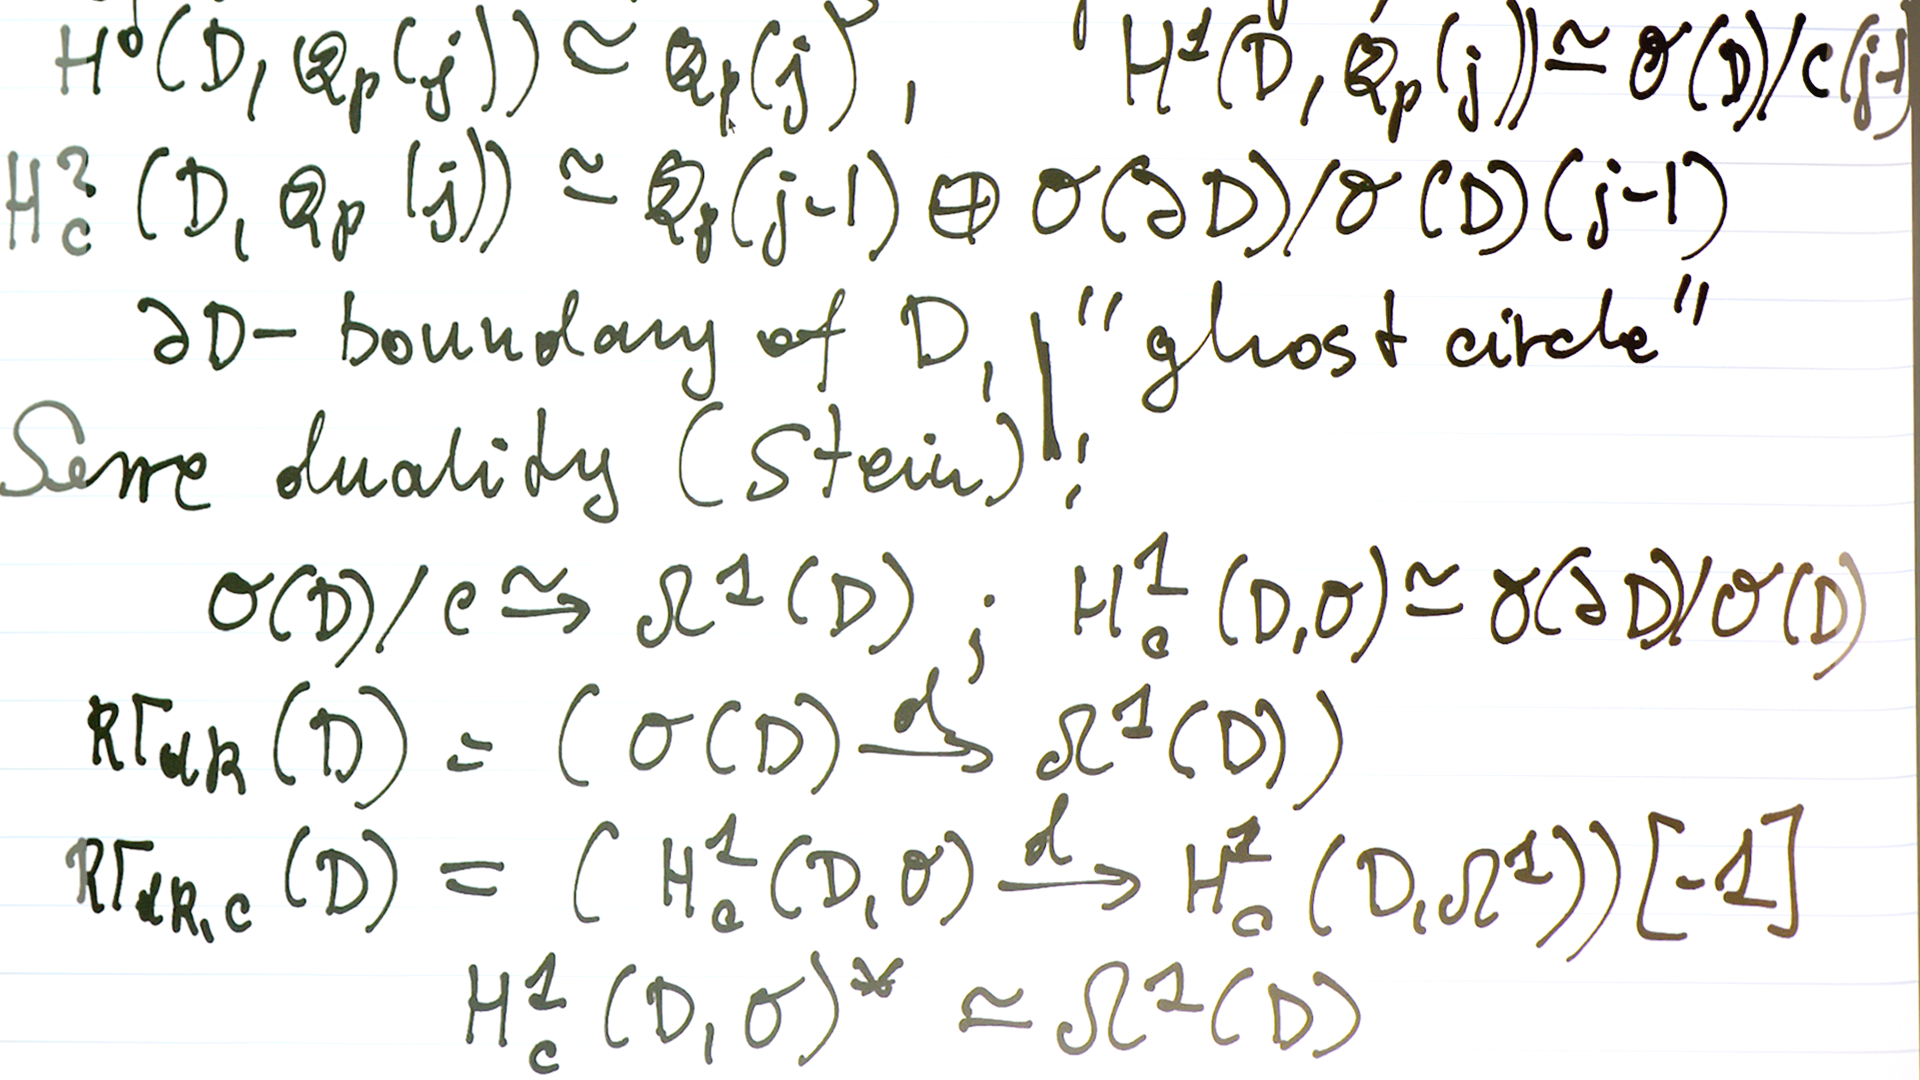 H⁰(D, ℚp(j)) ≃ ℚp(j), H¹(D, ℚp(j)) ≃ 𝒪(D)/C(j-1)
H²c(D, ℚp(j)) ≃ ℚp(j-1) ⊕ 𝒪(∂D)/𝒪(D)(j-1)
∂D - boundary of D, "ghost circle"
Serre duality (Stein):
𝒪(D)/C ≃→ Ω¹(D); H¹c(D, 𝒪) ≃ 𝒪(∂D)/𝒪(D)
RΓdR(D) = (𝒪(D) →d Ω¹(D))
RΓdR,c(D) = (H¹c(D, 𝒪) →d H¹c(D, Ω¹))[-1]
H¹c(D, 𝒪)* ≃ Ω¹(D)